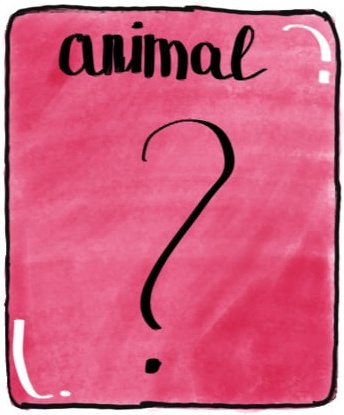 animal
?